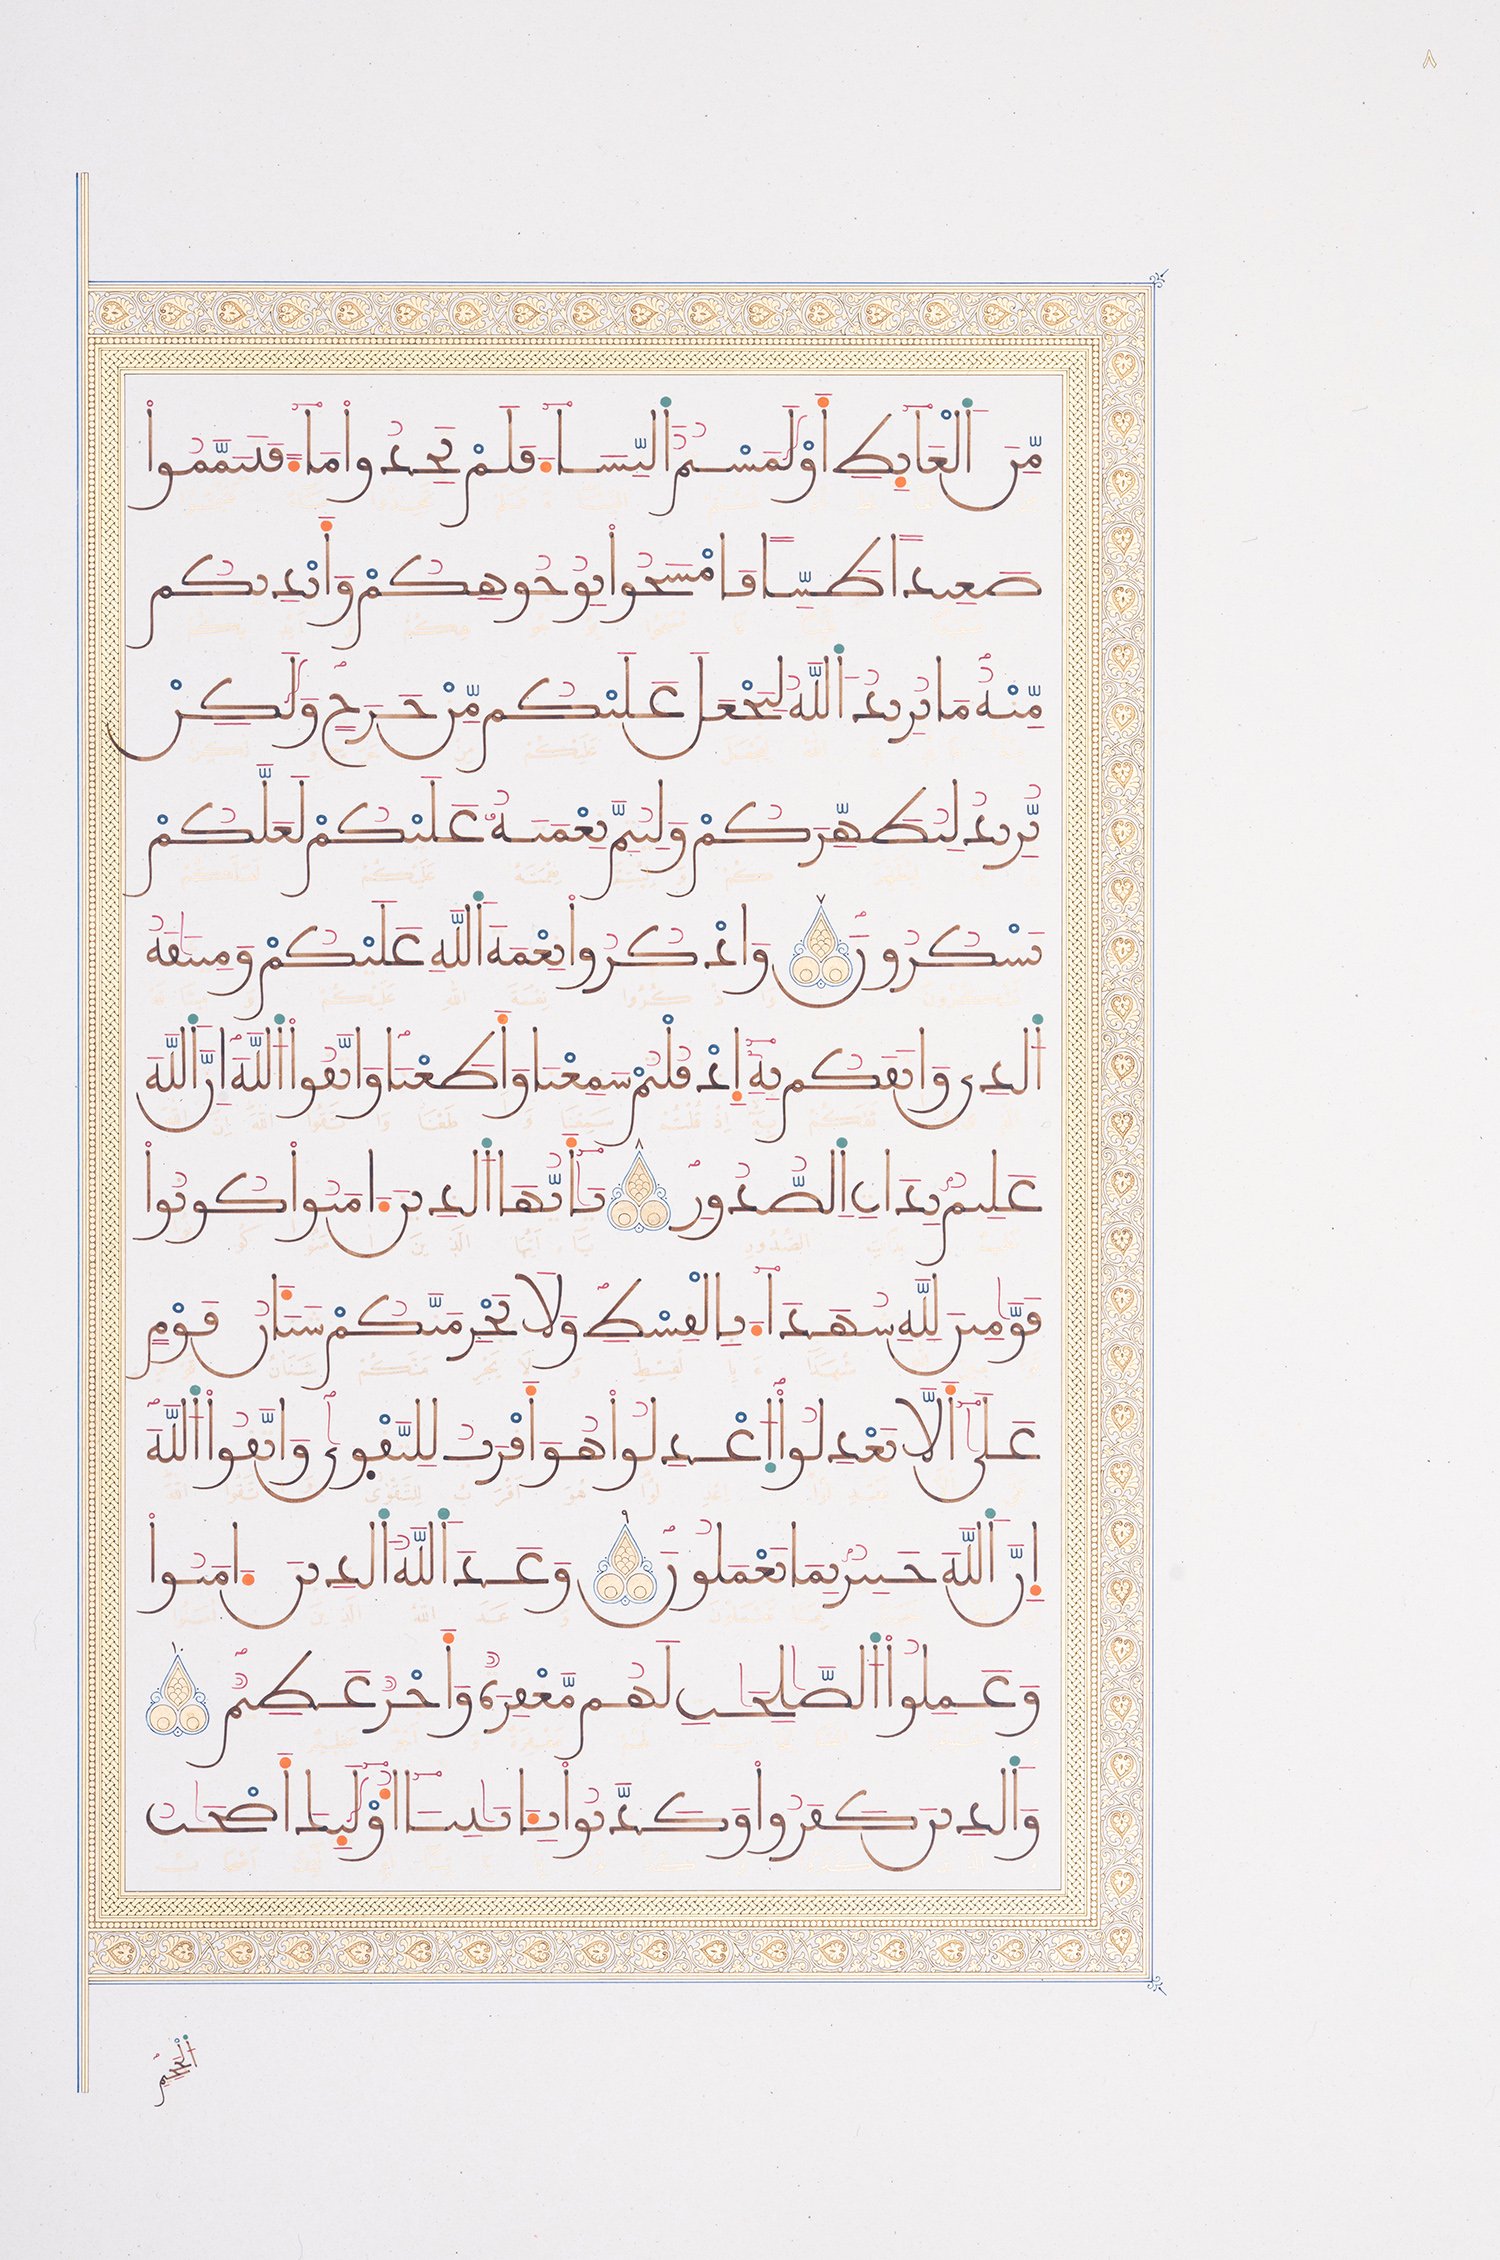 ٨
مِّنَ ٱلْغَآئِطِ أَوْ لَٰمَسْتُمُ ٱلنِّسَآءَ فَلَمْ تَجِدُوا۟ مَآءً فَتَيَمَّمُوا۟
صَعِيدًا طَيِّبًا فَٱمْسَحُوا۟ بِوُجُوهِكُمْ وَأَيْدِيكُم
مِّنْهُ ۚ مَا يُرِيدُ ٱللَّهُ لِيَجْعَلَ عَلَيْكُم مِّنْ حَرَجٍ وَلَٰكِن
يُرِيدُ لِيُطَهِّرَكُمْ وَلِيُتِمَّ نِعْمَتَهُۥ عَلَيْكُمْ لَعَلَّكُمْ
تَشْكُرُونَ ٧ وَٱذْكُرُوا۟ نِعْمَةَ ٱللَّهِ عَلَيْكُمْ وَمِيثَٰقَهُ
ٱلَّذِى وَاثَقَكُم بِهِۦٓ إِذْ قُلْتُمْ سَمِعْنَا وَأَطَعْنَا ۖ وَٱتَّقُوا۟ ٱللَّهَ ۚ إِنَّ ٱللَّهَ
عَلِيمٌۢ بِذَاتِ ٱلصُّدُورِ ٨ يَٰٓأَيُّهَا ٱلَّذِينَ ءَامَنُوا۟ كُونُوا۟
قَوَّٰمِينَ لِلَّهِ شُهَدَآءَ بِٱلْقِسْطِ ۖ وَلَا يَجْرِمَنَّكُمْ شَنَـَٔانُ قَوْمٍ
عَلَىٰٓ أَلَّا تَعْدِلُوا۟ ۚ ٱعْدِلُوا۟ هُوَ أَقْرَبُ لِلتَّقْوَىٰ ۖ وَٱتَّقُوا۟ ٱللَّهَ ۚ
إِنَّ ٱللَّهَ خَبِيرٌۢ بِمَا تَعْمَلُونَ ٩ وَعَدَ ٱللَّهُ ٱلَّذِينَ ءَامَنُوا۟
وَعَمِلُوا۟ ٱلصَّٰلِحَٰتِ ۙ لَهُم مَّغْفِرَةٌ وَأَجْرٌ عَظِيمٌ ١٠
وَٱلَّذِينَ كَفَرُوا۟ وَكَذَّبُوا۟ بِـَٔايَٰتِنَآ أُو۟لَٰٓئِكَ أَصْحَٰبُ
ٱلْجَحِيمِ